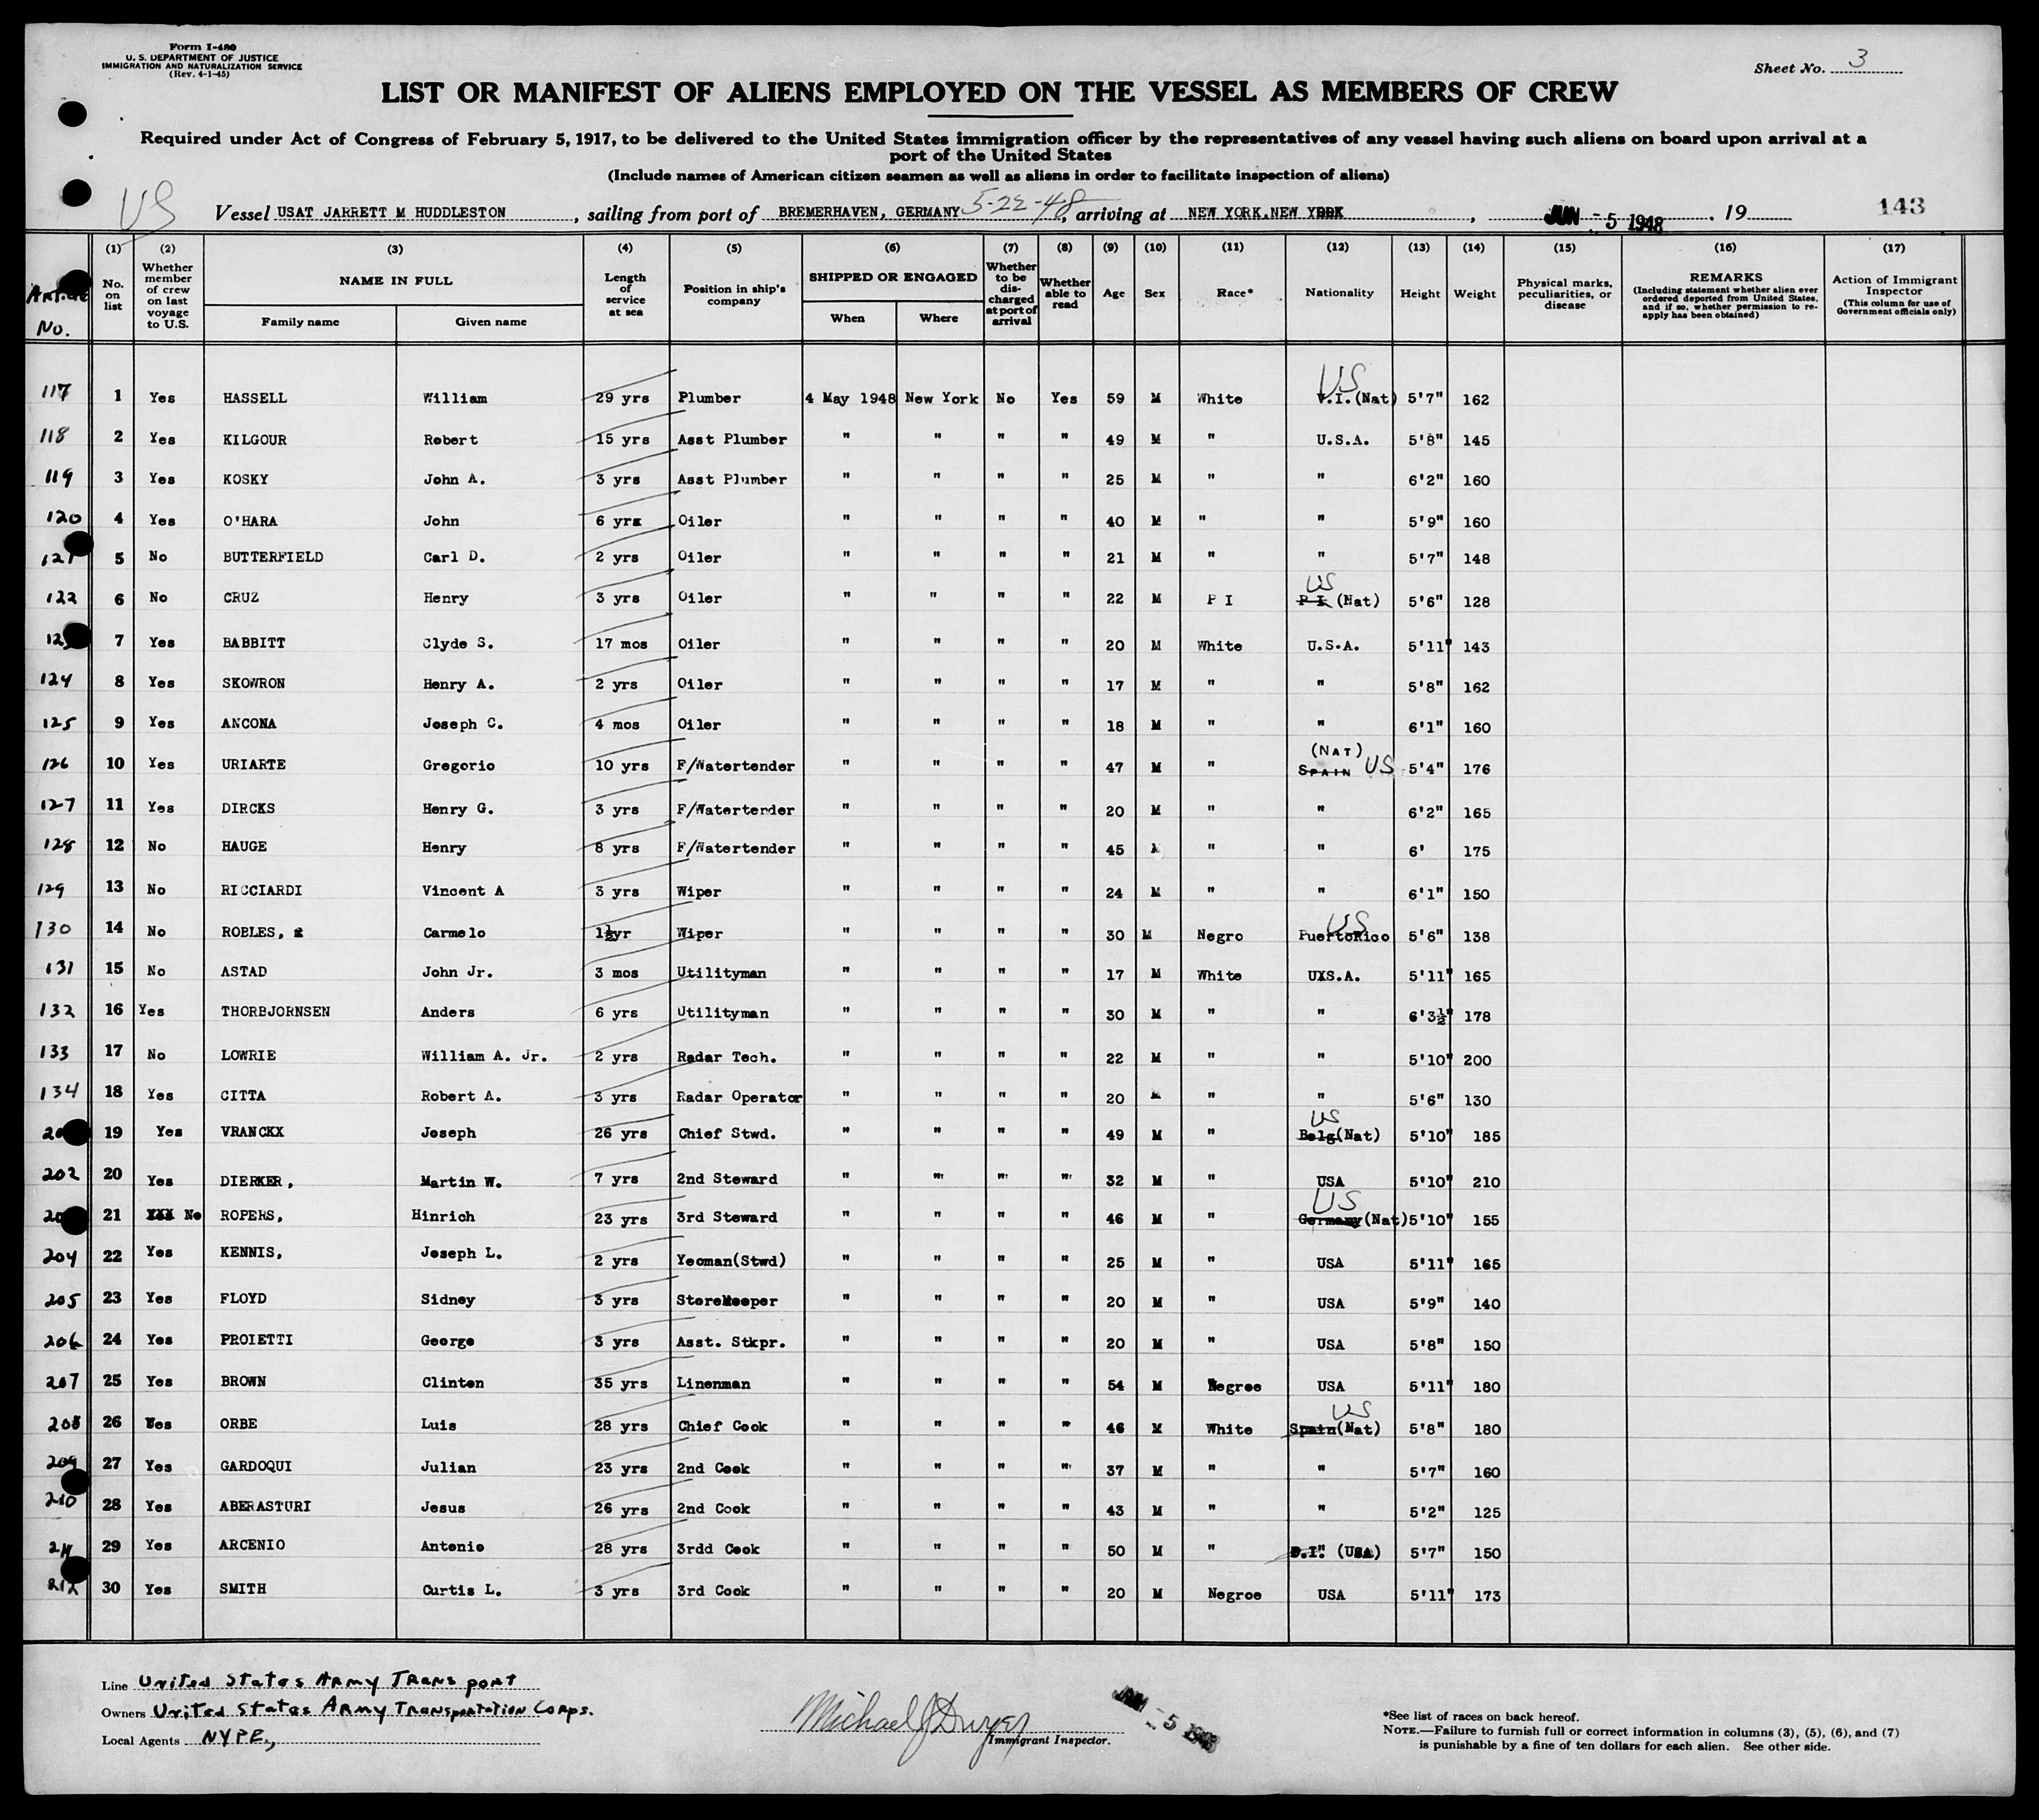 Form I-480
U. S. DEPARTMENT OF JUSTICE
IMMIGRATION AND NATURALIZATION SERVICE
(Rev. 4-1-45)
Sheet No. 3
LIST OR MANIFEST OF ALIENS EMPLOYED ON THE VESSEL AS MEMBERS OF CREW
Required under Act of Congress of February 5, 1917, to be delivered to the United States immigration officer by the representatives of any vessel having such aliens on board upon arrival at a
port of the United States
(Include names of American citizen seamen as well as aliens in order to facilitate inspection of aliens)
US
Vessel USAT JARRETT M HUDDLESTON, sailing from port of BREMERHAVEN, GERMANY 5-22-48, arriving at NEW YORK.NEW YORK, JUN - 5 1948. 19 143
Article No.
(1) No. on list
(2) Whether member of crew on last voyage to U.S.
(3) NAME IN FULL Family name Given name
(4) Length of service at sea
(5) Position in ship's company
(6) SHIPPED OR ENGAGED When Where
(7) Whether to be discharged at port of arrival
(8) Whether able to read
(9) Age
(10) Sex
(11) Race*
(12) Nationality
(13) Height
(14) Weight
(15) Physical marks, peculiarities, or disease
(16) REMARKS (Including statement whether alien ever ordered deported from United States, and if so, whether permission to re-apply has been obtained)
(17) Action of Immigrant Inspector (This column for use of Government officials only)
117 1 Yes HASSELL William 29 yrs Plumber 4 May 1948 New York No Yes 59 M White US (Nat) 5'7" 162
118 2 Yes KILGOUR Robert 15 yrs Asst Plumber " " " " 49 M " U.S.A. 5'8" 145
119 3 Yes KOSKY John A. 3 yrs Asst Plumber " " " " 25 M " " 6'2" 160
120 4 Yes O'HARA John 6 yrs Oiler " " " " 40 M " " 5'9" 160
121 5 No BUTTERFIELD Carl D. 2 yrs Oiler " " " " 21 M " " 5'7" 148
122 6 No CRUZ Henry 3 yrs Oiler " " " " 22 M P I US P I (Nat) 5'6" 128
7 Yes BABBITT Clyde S. 17 mos Oiler " " " " 20 M White U.S.A. 5'11" 143
124 8 Yes SKOWRON Henry A. 2 yrs Oiler " " " " 17 M " " 5'8" 162
125 9 Yes ANCONA Joseph C. 4 mos Oiler " " " " 18 M " " 6'1" 160
126 10 Yes URIARTE Gregorio 10 yrs F/Watertender " " " " 47 M " (NAT) SPAIN US 5'4" 176
127 11 Yes DIRCKS Henry G. 3 yrs F/Watertender " " " " 20 M " " 6'2" 165
128 12 No HAUGE Henry 8 yrs F/Watertender " " " " 45 M " " 6' 175
129 13 No RICCIARDI Vincent A 3 yrs Wiper " " " " 24 M " " 6'1" 150
130 14 No ROBLES, Carmelo 1½yr Wiper " " " " 30 M Negro US PuertoRico 5'6" 138
131 15 No ASTAD John Jr. 3 mos Utilityman " " " " 17 M White UXS.A. 5'11" 165
132 16 Yes THORBJORNSEN Anders 6 yrs Utilityman " " " " 30 M " " 6'3½" 178
133 17 No LOWRIE William A. Jr. 2 yrs Radar Tech. " " " " 22 M " " 5'10" 200
134 18 Yes CITTA Robert A. 3 yrs Radar Operator " " " " 20 M " " 5'6" 130
19 Yes VRANCKX Joseph 26 yrs Chief Stwd. " " " " 49 M " US Belg(Nat) 5'10" 185
202 20 Yes DIERKER, Martin W. 7 yrs 2nd Steward " " " " 32 M " USA 5'10" 210
21 XXX No ROPERS, Hinrich 23 yrs 3rd Steward " " " " 46 M " US Germany(Nat) 5'10" 155
204 22 Yes KENNIS, Joseph L. 2 yrs Yeoman(Stwd) " " " " 25 M " USA 5'11" 165
205 23 Yes FLOYD Sidney 3 yrs Storekeeper " " " " 20 M " USA 5'9" 140
206 24 Yes PROIETTI George 3 yrs Asst. Stkpr. " " " " 20 M " USA 5'8" 150
207 25 Yes BROWN Clinton 35 yrs Linenman " " " " 54 M Negroe USA 5'11" 180
208 26 Yes ORBE Luis 28 yrs Chief Cook " " " " 46 M White US Spain(Nat) 5'8" 180
209 27 Yes GARDOQUI Julian 23 yrs 2nd Cook " " " " 37 M " " 5'7" 160
210 28 Yes ABERASTURI Jesus 26 yrs 2nd Cook " " " " 43 M " " 5'2" 125
211 29 Yes ARCENIO Antonio 28 yrs 3rdd Cook " " " " 50 M " (USA) 5'7" 150
212 30 Yes SMITH Curtis L. 3 yrs 3rd Cook " " " " 20 M Negroe USA 5'11" 173
Line United States Army Transport
Owners United States Army Transportation Corps.
Local Agents NYPE,
Michael J Dwyer
Immigrant Inspector.
JUN - 5 1948
*See list of races on back hereof.
NOTE.—Failure to furnish full or correct information in columns (3), (5), (6), and (7)
is punishable by a fine of ten dollars for each alien. See other side.